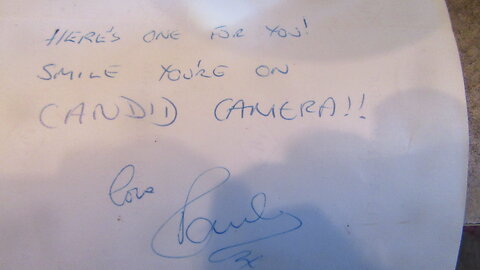 HERE'S ONE FOR YOU!
SMILE YOU'RE ON
CANDID CAMERA!!
love